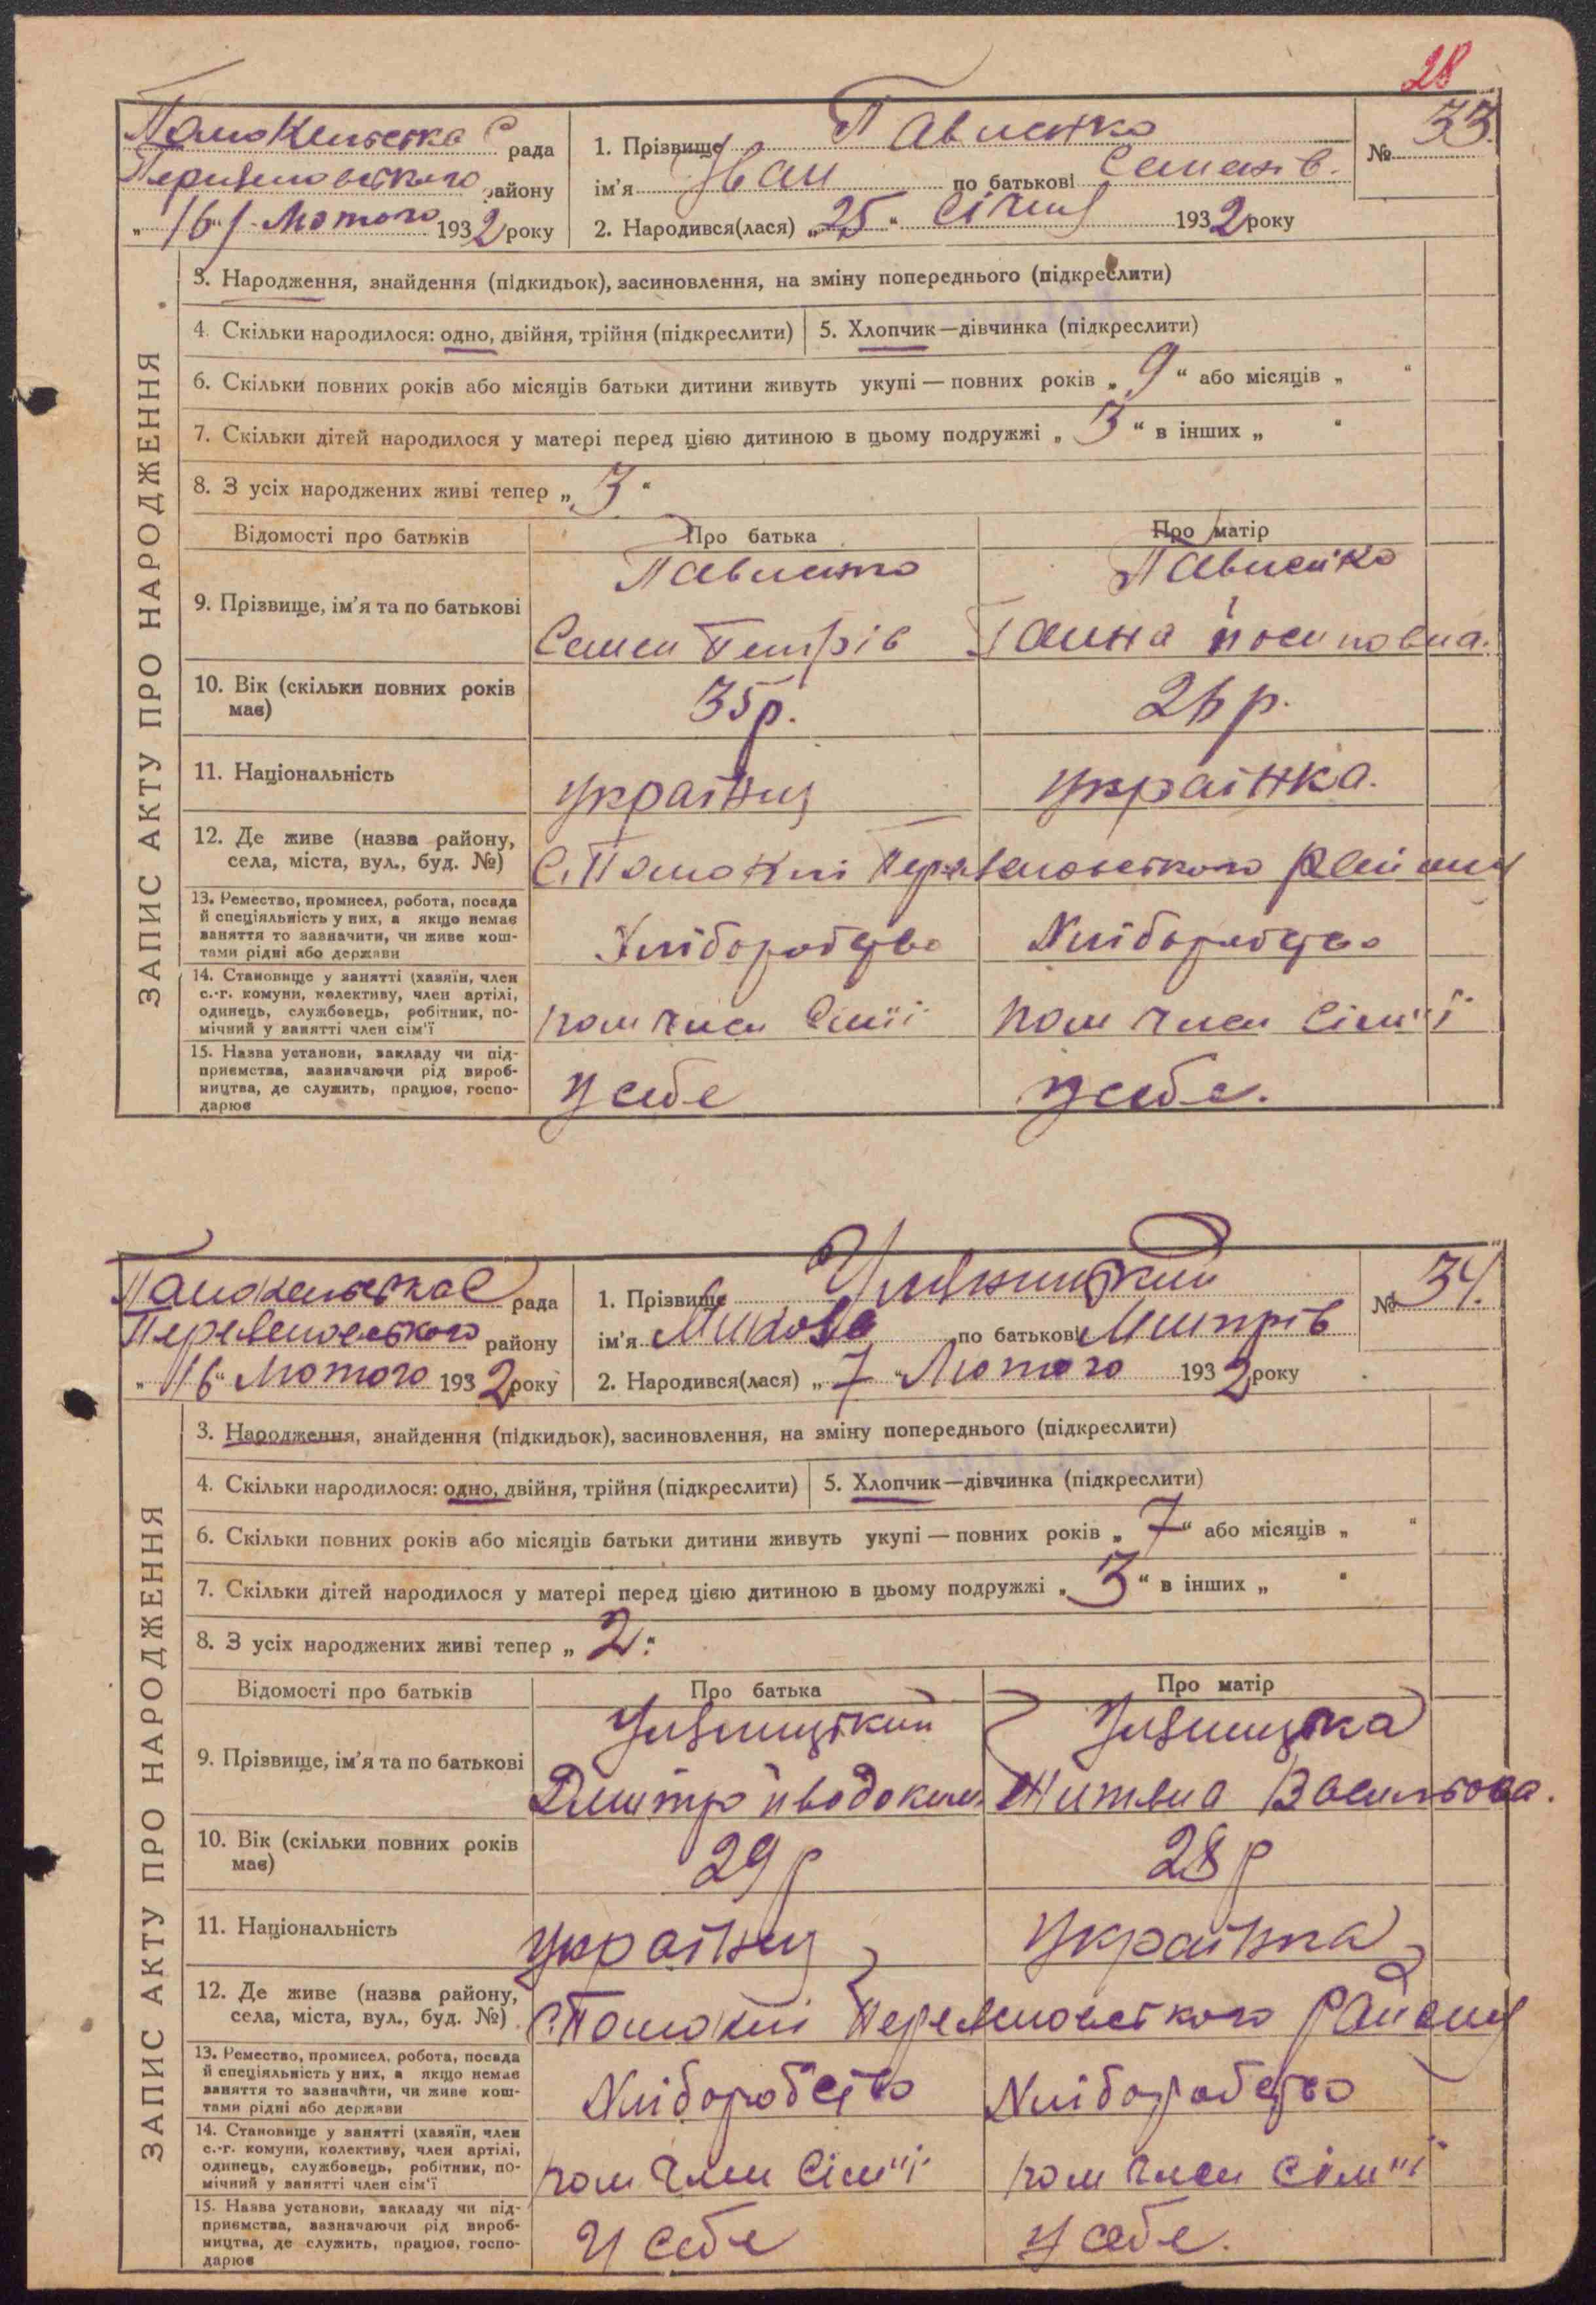 28
Помокельська С рада
району
"16" Лютого 1932 року
1. Прізвище Павленко
№ 33.
ім'я Іван по батькові Семенів.
2. Народився(лася) „25" січня 1932 року
ЗАПИС АКТУ ПРО НАРОДЖЕННЯ
3. Народження, знайдення (підкидьок), засиновлення, на зміну попереднього (підкреслити)
4. Скільки народилося: одно, двійня, трійня (підкреслити) 5. Хлопчик—дівчинка (підкреслити)
6. Скільки повних років або місяців батьки дитини живуть укупі — повних років „9" або місяців „ "
7. Скільки дітей народилося у матері перед цією дитиною в цьому подружжі „3" в інших „ "
8. З усіх народжених живі тепер „3"
Відомості про батьків Про батька Про матір
9. Прізвище, ім'я та по батькові
Павленко Павленко
Семен Петрів Ганна Йосиповна.
10. Вік (скільки повних років
має)
35 р. 26 р.
11. Національність
українец українка.
12. Де живе (назва району,
села, міста, вул., буд. №)
С. Помоклі району
13. Ремество, промисел, робота, посада
й спеціяльність у них, а якщо немає
заняття то зазначити, чи живе кош-
тами рідні або держави
Хліборобство Хліборобство
14. Становище у занятті (хазяїн, член
с.-г. комуни, колективу, член артілі,
одинець, службовець, робітник, по-
мічний у занятті член сім'ї
пом член сімї пом член сім"ї
15. Назва установи, закладу чи під-
приємства, зазначаючи рід вироб-
ництва, де служить, працює, госпо-
дарює
у себе у себе.
Помокельская С рада
району
"16" Лютого 1932 року
1. Прізвище
№ 34.
ім'я Микола по батькові Дмитрів
2. Народився(лася) „7" Лютого 1932 року
ЗАПИС АКТУ ПРО НАРОДЖЕННЯ
3. Народження, знайдення (підкидьок), засиновлення, на зміну попереднього (підкреслити)
4. Скільки народилося: одно, двійня, трійня (підкреслити) 5. Хлопчик—дівчинка (підкреслити)
6. Скільки повних років або місяців батьки дитини живуть укупі — повних років „7" або місяців „ "
7. Скільки дітей народилося у матері перед цією дитиною в цьому подружжі „3" в інших „ "
8. З усіх народжених живі тепер „2"
Відомості про батьків Про батька Про матір
9. Прізвище, ім'я та по батькові
Дмитро Васильова.
10. Вік (скільки повних років
має)
29 р 28 р
11. Національність
українец українка
12. Де живе (назва району,
села, міста, вул., буд. №)
С. Помоклі району
13. Ремество, промисел, робота, посада
й спеціяльність у них, а якщо немає
заняття то зазначити, чи живе кош-
тами рідні або держави
Хліборобство Хліборобство
14. Становище у занятті (хазяїн, член
с.-г. комуни, колективу, член артілі,
одинець, службовець, робітник, по-
мічний у занятті член сім'ї
пом член сім"ї пом член сім"ї
15. Назва установи, закладу чи під-
приємства, зазначаючи рід вироб-
ництва, де служить, працює, госпо-
дарює
у себе у себе.